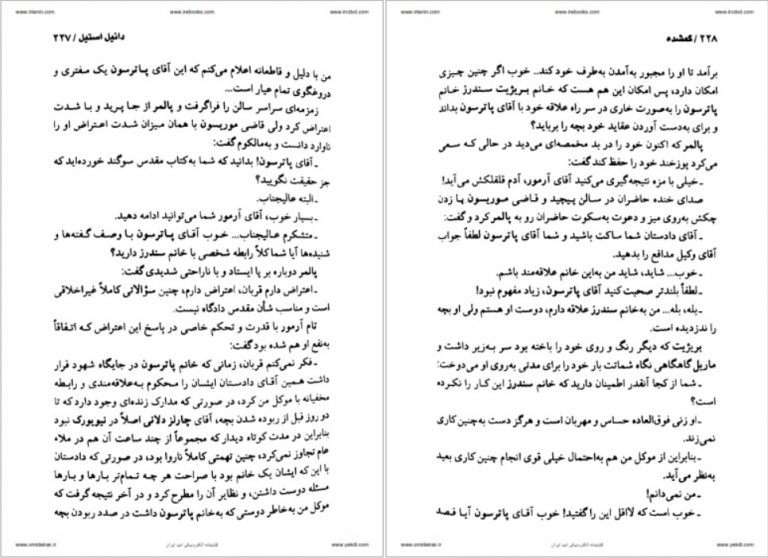 www.irtanin.com
www.irebooks.com
www.ircdvd.com
دانیل استیل / ۲۲۷
من با دلیل و قاطعانه اعلام می‌کنم که این آقای پاترسون یک مفتری و
دروغگوی تمام عیار است...
زمزمه‌ای سراسر سالن را فراگرفت و پالمر از جا پرید و با شدت
اعتراض کرد ولی قاضی موریسون با همان میزان شدت اعتراض او را
ناوارد دانست و به‌مالکوم گفت:
ـ آقای پاترسون! بدانید که شما به‌کتاب مقدس سوگند خورده‌اید که
جز حقیقت نگویید؟
ـ البته عالیجناب.
ـ بسیار خوب، آقای آرمور شما می‌توانید ادامه دهید.
ـ متشکرم عالیجناب... خوب آقـای پـاترسون بـا وصـف گـفته‌ها و
شنیده‌ها آیا شما کلاً رابطه شخصی با خانم سندرز دارید؟
پالمر دوباره بر پا ایستاد و با ناراحتی شدیدی گفت:
ـ اعتراض دارم قربان، اعتراض دارم، چنین سؤالاتی کاملاً غیراخلاقی
است و مناسب شأن مقدس دادگاه نیست.
تام آرمور با قدرت و تحکم خاصی در پاسخ این اعتراض که اتـفاقاً
به‌نفع او هم شده بود گفت:
ـ فکر نمی‌کنم قربان، زمانی که خانم پاترسون در جایگاه شهود قرار
داشت همین آقای دادستان ایشان را محکوم به‌علاقه‌مندی و رابطه
مخفیانه با موکل من کرد، در صورتی که مدارک زنده‌ای وجود دارد که تا
دو روز قبل از ربوده شدن بچه، آقای چارلز دلانی اصلاً در نیویورک نبود
بنابراین در مدت کوتاه دیدار که مجموعاً از چند ساعت آن هم در ملاء
عام تجاوز نمی‌کرد، چنین تهمتی کاملاً ناروا بود، در صورتی که دادستان
با این که ایشان یک خانم بود با صراحت هر چه تـمام‌تر بـارها و بـارها
مسئله دوست داشتن، و نظایر آن را مطرح کرد و در آخر نتیجه گرفت که
موکل من به‌خاطر دوستی که به‌خانم پاترسون داشت در صدد ربودن بچه
www.omideiran.ir
کتابخانه الکترونیکی امید ایران
www.yekdl.com
www.irtanin.com
www.irebooks.com
www.ircdvd.com
۲۲۸ / گمشده
برآمد تا او را مجبور به‌آمدن به‌طرف خود کند.. خوب اگر چنین چیزی
امکان دارد، پس امکان این هم هست که خانـم بریژیت سندرز خانم
پاترسون را به‌صورت خاری در سر راه علاقه خود با آقای پاترسون بداند
و برای به‌دست آوردن عقاید خود بچه را برباید؟
پالمر که اکنون خود را در بد مخمصه‌ای می‌دید در حالی کـه سـعی
می‌کرد پوزخند خود را حفظ کند گفت:
ـ خیلی با مزه نتیجه‌گیری می‌کنید آقای آرمور، آدم قلقلکش می‌آید!
صدای خنده حاضران در سالن پیچید و قـاضی موریسون بـا زدن
چکش به‌روی میز و دعوت به‌سکوت حاضران رو به پالمر کرد و گفت:
ـ آقای دادستان شما ساکت باشید و شما آقای پاترسون لطفاً جواب
آقای وکیل مدافع را بدهید.
ـ خوب... شاید، شاید من به‌این خانم علاقه‌مند باشم.
ـ لطفاً بلندتر صحبت کنید آقای پاترسون، زیاد مفهوم نبود!
ـ بله، بله... من به‌خانم سندرز علاقه دارم، دوست او هستم ولی او بچه
را ندزدیده است.
بریژیت که دیگر رنگ و روی خود را باخته بود سر به‌زیر داشت و
ماریل گاهگاهی نگاه شماتت بار خود را برای مدتی به‌روی او می‌دوخت:
ـ شما از کجا آنقدر اطمینان دارید که خانم سندرز این کار را نکرده
است؟
ـ او زنی فوق‌العاده حساس و مهربان است و هرگز دست به‌چنین کاری
نمی‌زند.
ـ بنابراین از موکل من هم به‌احتمال خیلی قوی انجام چنین کاری بعید
به‌نظر می‌آید.
ـ من نمی‌دانم!
ـ خوب است که لااقل این را گفتید! خوب آقـای پـاترسون آیـا قـصد
www.omideiran.ir
کتابخانه الکترونیکی امید ایران
www.yekdl.com